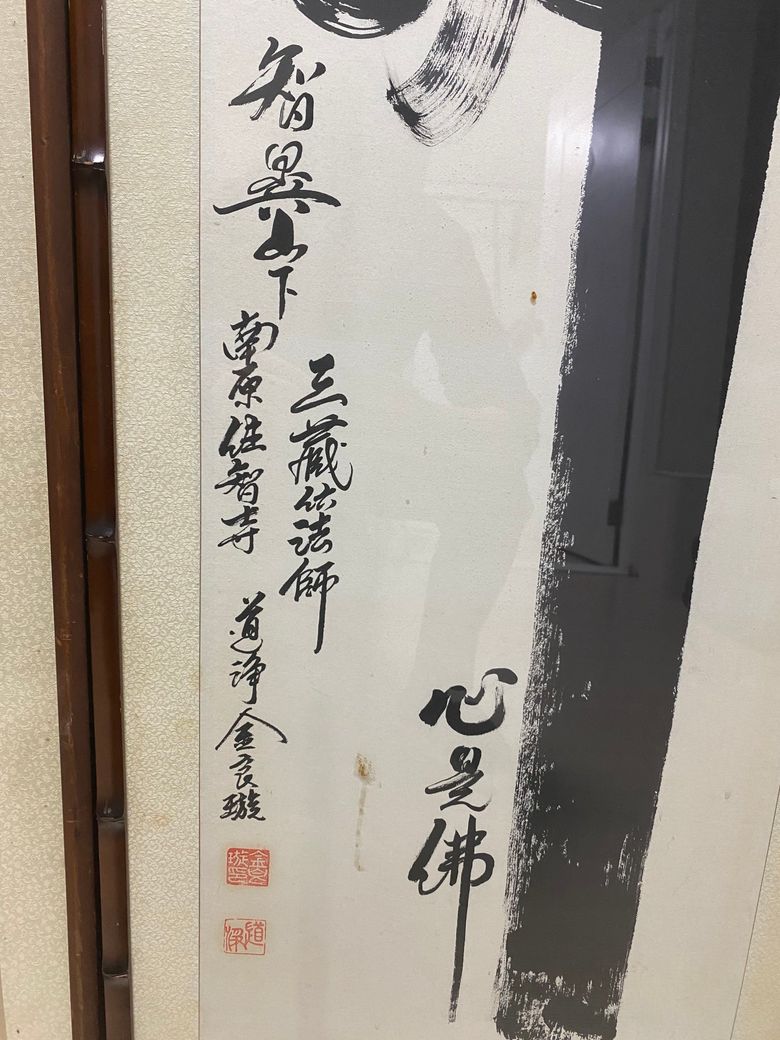 心是佛
三藏法師
智異山下 南原住智寺 道淨 金良璇
金良璇印
道淨